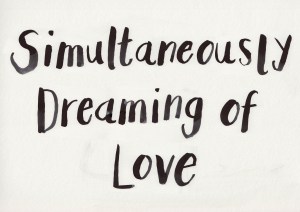 Simultaneously
Dreaming of
Love